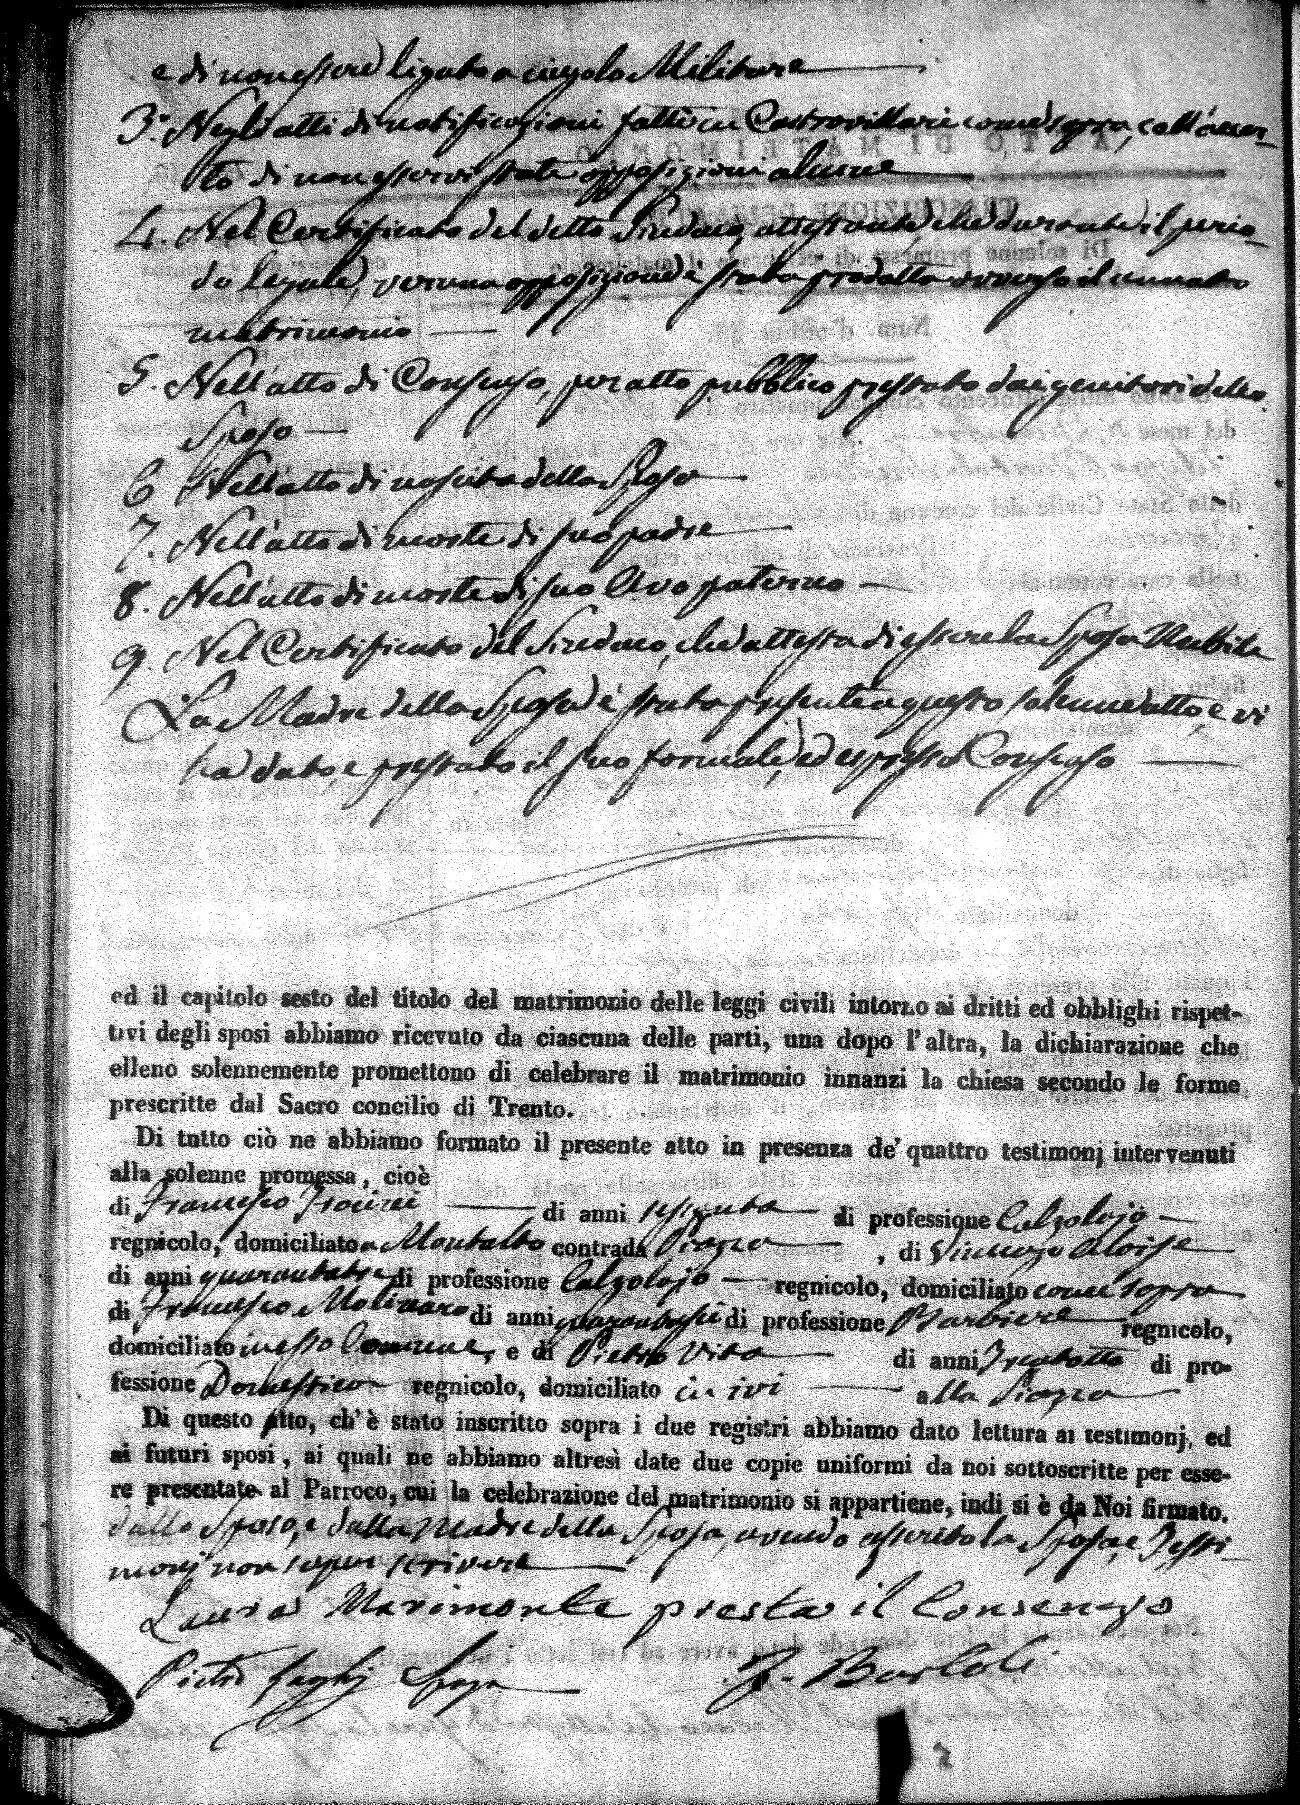 e di non essere ligato a cingolo Militare
3.° Negli atti di notificazioni fatti in Castrovillari come sopra, coll'assen-
to di non esservi state opposizioni alcune
4. Nel Certificato del detto Sindaco, attestante che durante il perio-
do legale, veruna opposizione è stata prodotta avverso il
matrimonio
5. Nell'atto di Consenso, per atto pubblico prestato dai genitori dello
Sposo
6 Nell'atto di nascita della Sposa
7. Nell'atto di morte di suo padre
8. Nell'atto di morte di suo Avo paterno
9. Nel Certificato del Sindaco, che attesta di essere la Sposa Nubile
La Madre della Sposa è stata presente a questo solenne atto, e vi
ha dato, e prestato il suo formale, ed espresso Consenso
ed il capitolo sesto del titolo del matrimonio delle leggi civili intorno ai dritti ed obblighi rispet-
tivi degli sposi abbiamo ricevuto da ciascuna delle parti, una dopo l'altra, la dichiarazione che
elleno solennemente promettono di celebrare il matrimonio innanzi la chiesa secondo le forme
prescritte dal Sacro concilio di Trento.
Di tutto ciò ne abbiamo formato il presente atto in presenza de' quattro testimonj intervenuti
alla solenne promessa, cioè
di Francesco di anni sessanta di professione Calzolajo
regnicolo, domiciliato a Montalto contrada Piazza , di Vincenzo Aloise
di anni quarantatre di professione Calzolajo regnicolo, domiciliato come sopra
di Francesco Molinaro di anni quarantasei di professione Barbiere regnicolo,
domiciliato in esso Comune, e di Pietro Vita di anni Trentotto di pro-
fessione Domestico regnicolo, domiciliato in ivi alla Piazza
Di questo atto, ch'è stato inscritto sopra i due registri abbiamo dato lettura ai testimonj, ed
ai futuri sposi, ai quali ne abbiamo altresì date due copie uniformi da noi sottoscritte per esse-
re presentate al Parroco, cui la celebrazione del matrimonio si appartiene, indi si è da Noi firmato.
dallo Sposo, e dalla Madre della Sposa, avendo asserito la Sposa, e Testi-
monj non saper scrivere
Laura Marimonte presta il Consenzo
Pietro Sposo F. Bartoli